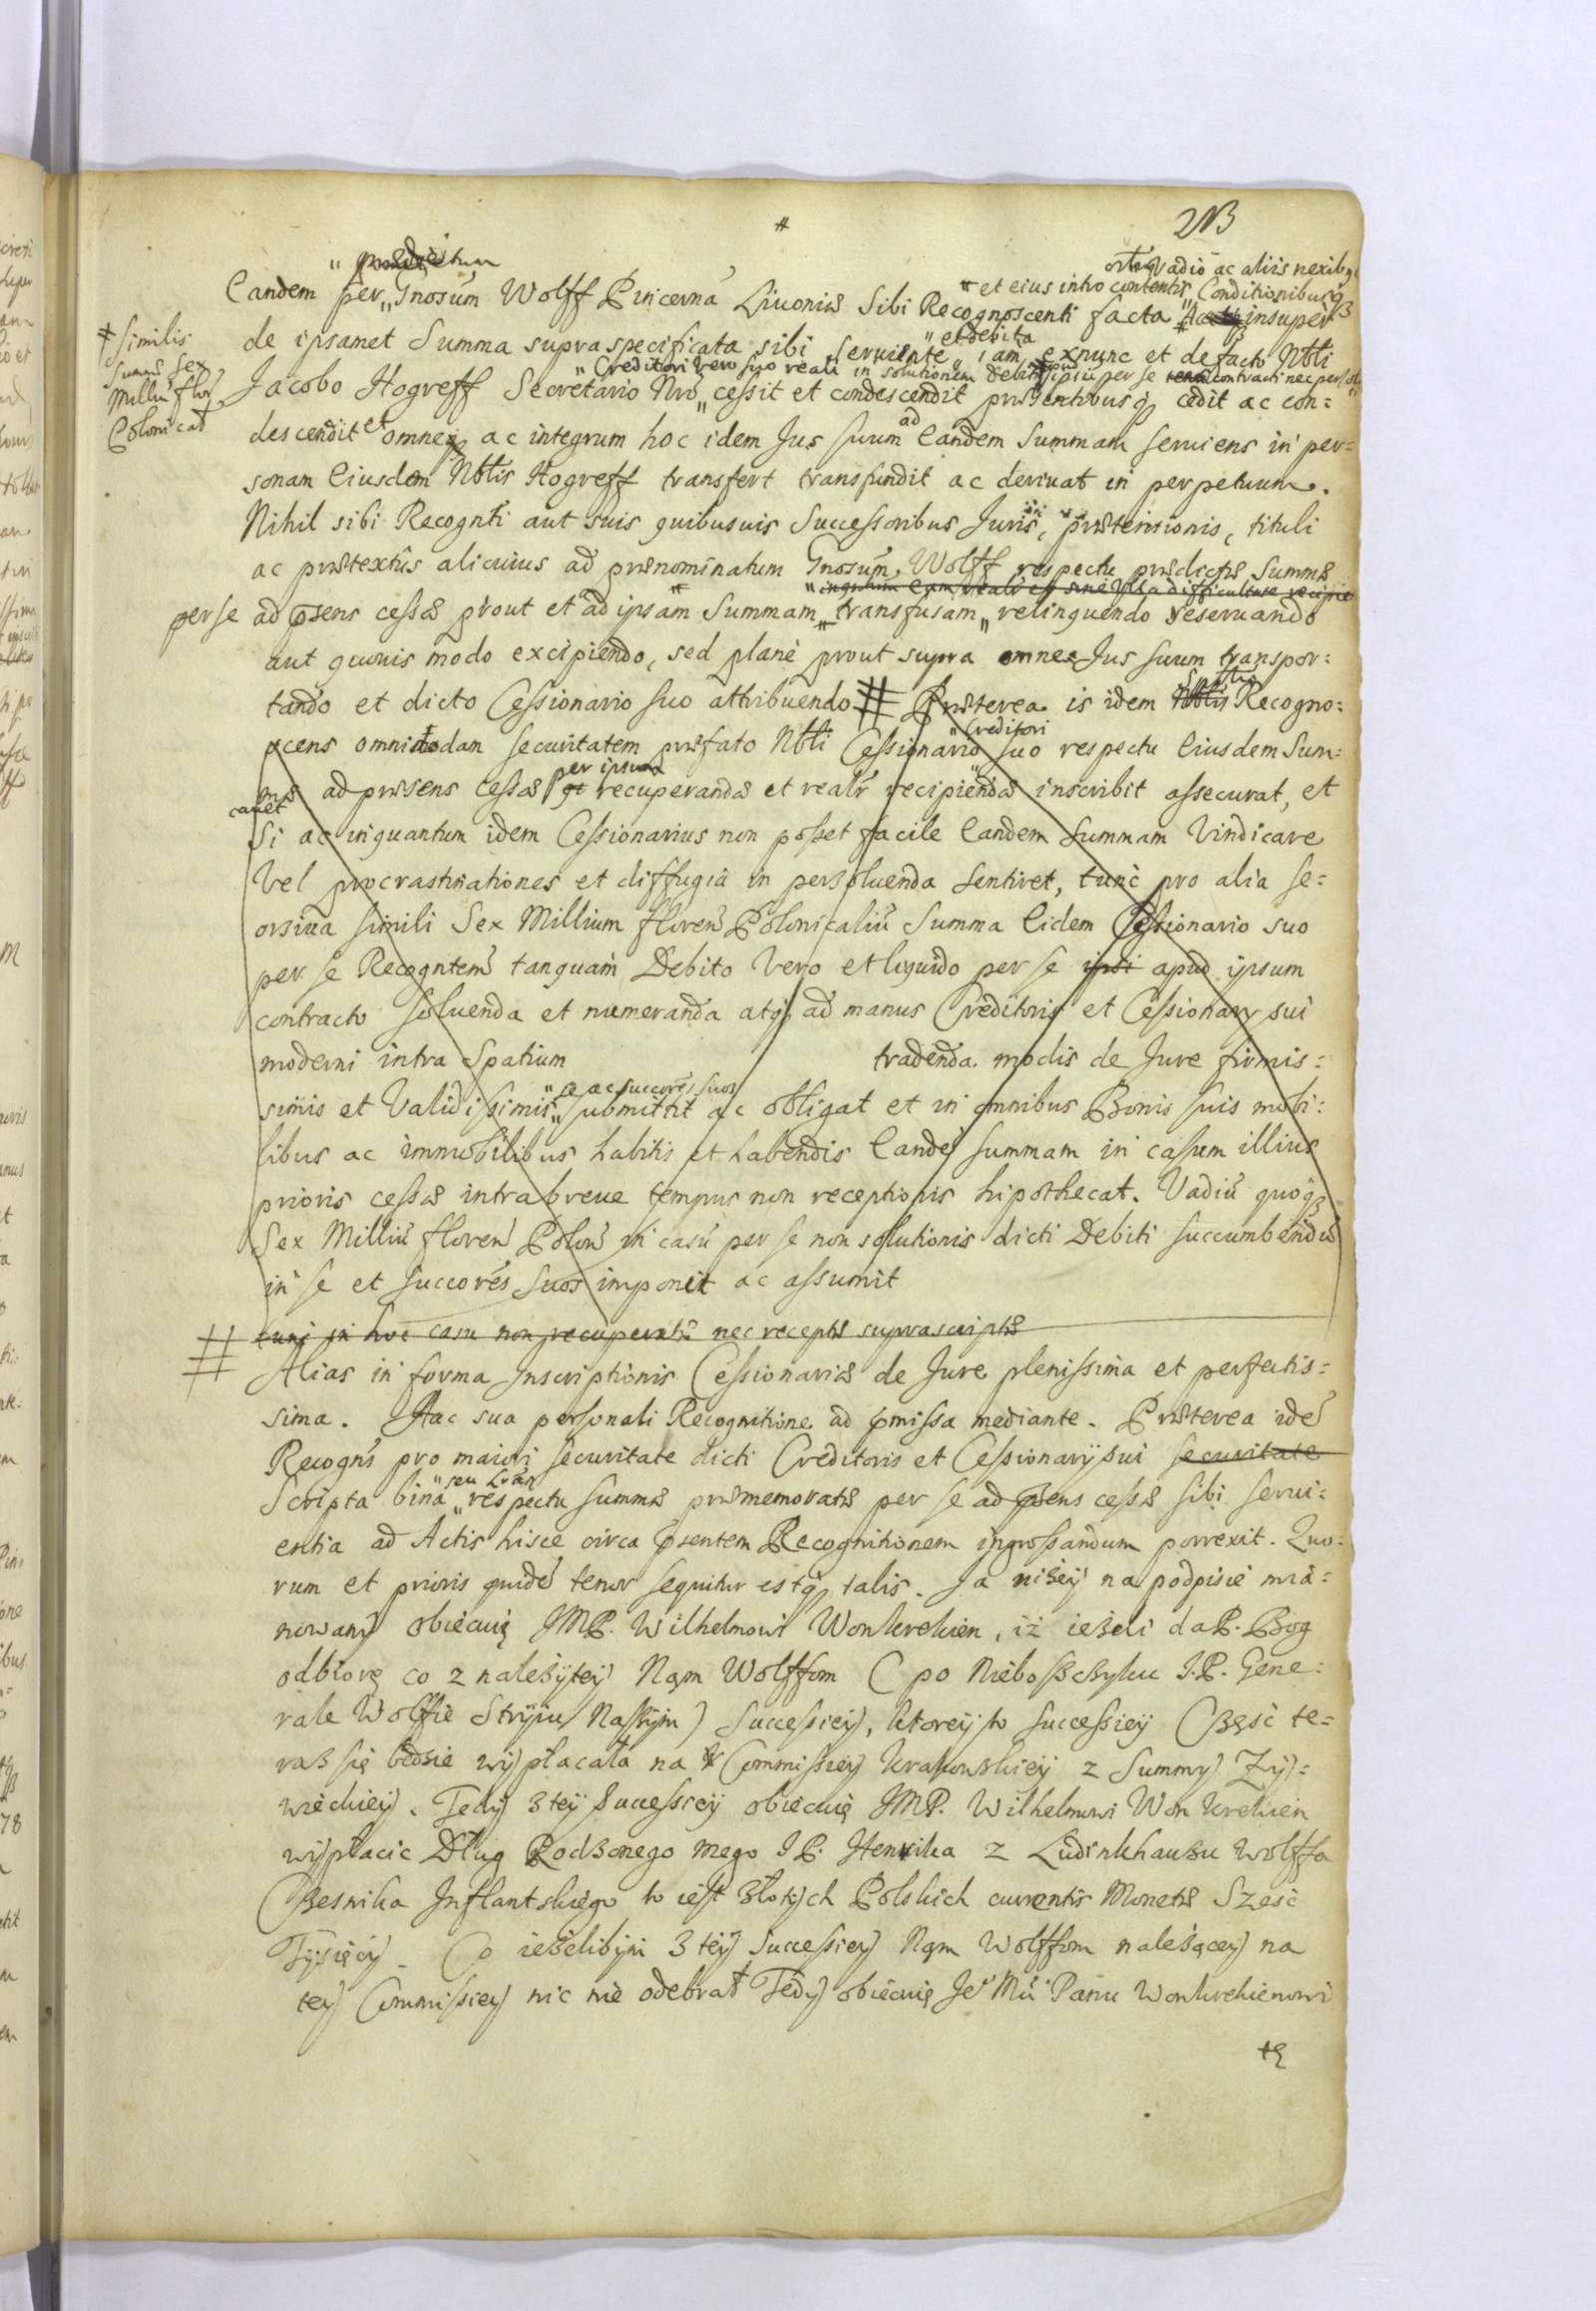 213
#
" prædictum
ortis Vadio ac aliis nexibq
# et eius intro contentis Conditionibusq
Eandem per „ Gnosum Wolff Pincerna Livoniæ Sibi Recognoscenti facta insuper
" et debita
de ipsamet Summa supraspecificata sibi serviente „ iam exnunc et defacto Nbli
" Creditori vero suo reali in solutionem Debiti ipsius per se contracti nec
Jacobo Hogreff Secretario Nro „ cessit et condescendit præsentibusq cedit ac con=
# similis
Summæ Sex
Milliu flor
Polonical
descendit et omneq ac integrum hoc idem Jus suum ad Eandem Summam serviens in per=
sonam Eiusdem Nblis Hogreff transfert transfundit ac derivat in perpetuum.
Nihil sibi Recognti aut suis quibusuis Successoribus Juris, prætensionis, tituli
ac prætextus alicuius ad prænominatum Gnosum Wolff respectu prædictæ Summæ
" inquantum eam realr et sine Ulla difficultate recipie
per se ad psens cessæ prout et ad ipsam Summam „ transfusam „ relinquendo reservando
aut quouis modo excipiendo, sed planè prout supra omne Jus suum transpor=
tando et dicto Cessionario suo attribuendo # Præterea is idem Nblis Recogno=
scens omnimodam securitatem præfato Nbli Cessionario " Creditori suo respectu Eiusdem Sum=
mæ ad præsens cessæ per ipsum recuperandæ et realr recipiendæ inscribit assecurat, et
cauet
Si ac inquantum idem Cessionarius non posset facile Eandem Summam Vindicare
Vel procrastinationes et diffugia in persoluenda sentiret, tunc pro alia se=
orsiva simili Sex Millium floren Polonicaliu Summa Eidem Cessionario suo
per se Recogntem tanquam Debito Vero et liquido per se ipsi apud ipsum
contracto soluenda et numeranda atq ad manus Creditoris et Cessionary sui
moderni intra Spatium tradenda modis de Jure firmis=
simis et Validissimis „ se ac succores suos submittit ac obligat et in omnibus Bonis suis mobi=
libus ac immobilibus habitis et habendis Eande summam in casum illius
prioris cessæ intra breve tempus non receptionis hipothecat. Vadiu quoq
Sex Milliu floren Polon in casu per se non solutionis dicti Debiti succumbendu
in se et succores suos imponit ac assumit
# tunc in hoc casu non recuperatæ nec receptæ suprascriptæ
Alias in forma Inscriptionis Cessionariæ de Jure plenissima et perfectis=
sima. Hac sua personali Recognitione ad pmissa mediante. Præterea ide
Recogns pro maiori securitate dicti Creditoris et Cessionarij sui securitate
Scripta bina " seu Lrãr respectu summæ præmemoratæ per se ad psens cessæ sibi servi=
entia ad Actis hisce circa psentem Recognitionem ingrossandum porrexit. Quo=
rum et prioris quide tenor sequitur estq talis. Ja niżey na podpisie mia=
nowany obiecuię JMP. Wilhelmowi Wonkrekien, iż ieżeli da P. Bog
odbiorę co z należytey Nąm Wolffom (po Nieboszczyku J.P. Gene=
rale Wolffie Stryiu Naszym) Successiey, ktorey to successiey Część te=
raz się bedzie wypłacała na Commissiey Krakowskiey z Summy Zy=
wieckiey. Tedy z tey Successiey obiecuię JMP. Wilhelmowi Won Krekien
wypłacic Dług Rodzonego mego J P. Henrika z Ludinkhauzu Wolffa
Czesnika Inflantskiego to iest złotych Polskich currentis Monetæ Szesc
Tysięcy. Co ieżelibym z tey Successiey Nąm Wolffom należącey na
tey Commissiey nic nie odebrał Tedy obiecuię Je° Mu Panu Wonkrekienowi
tę